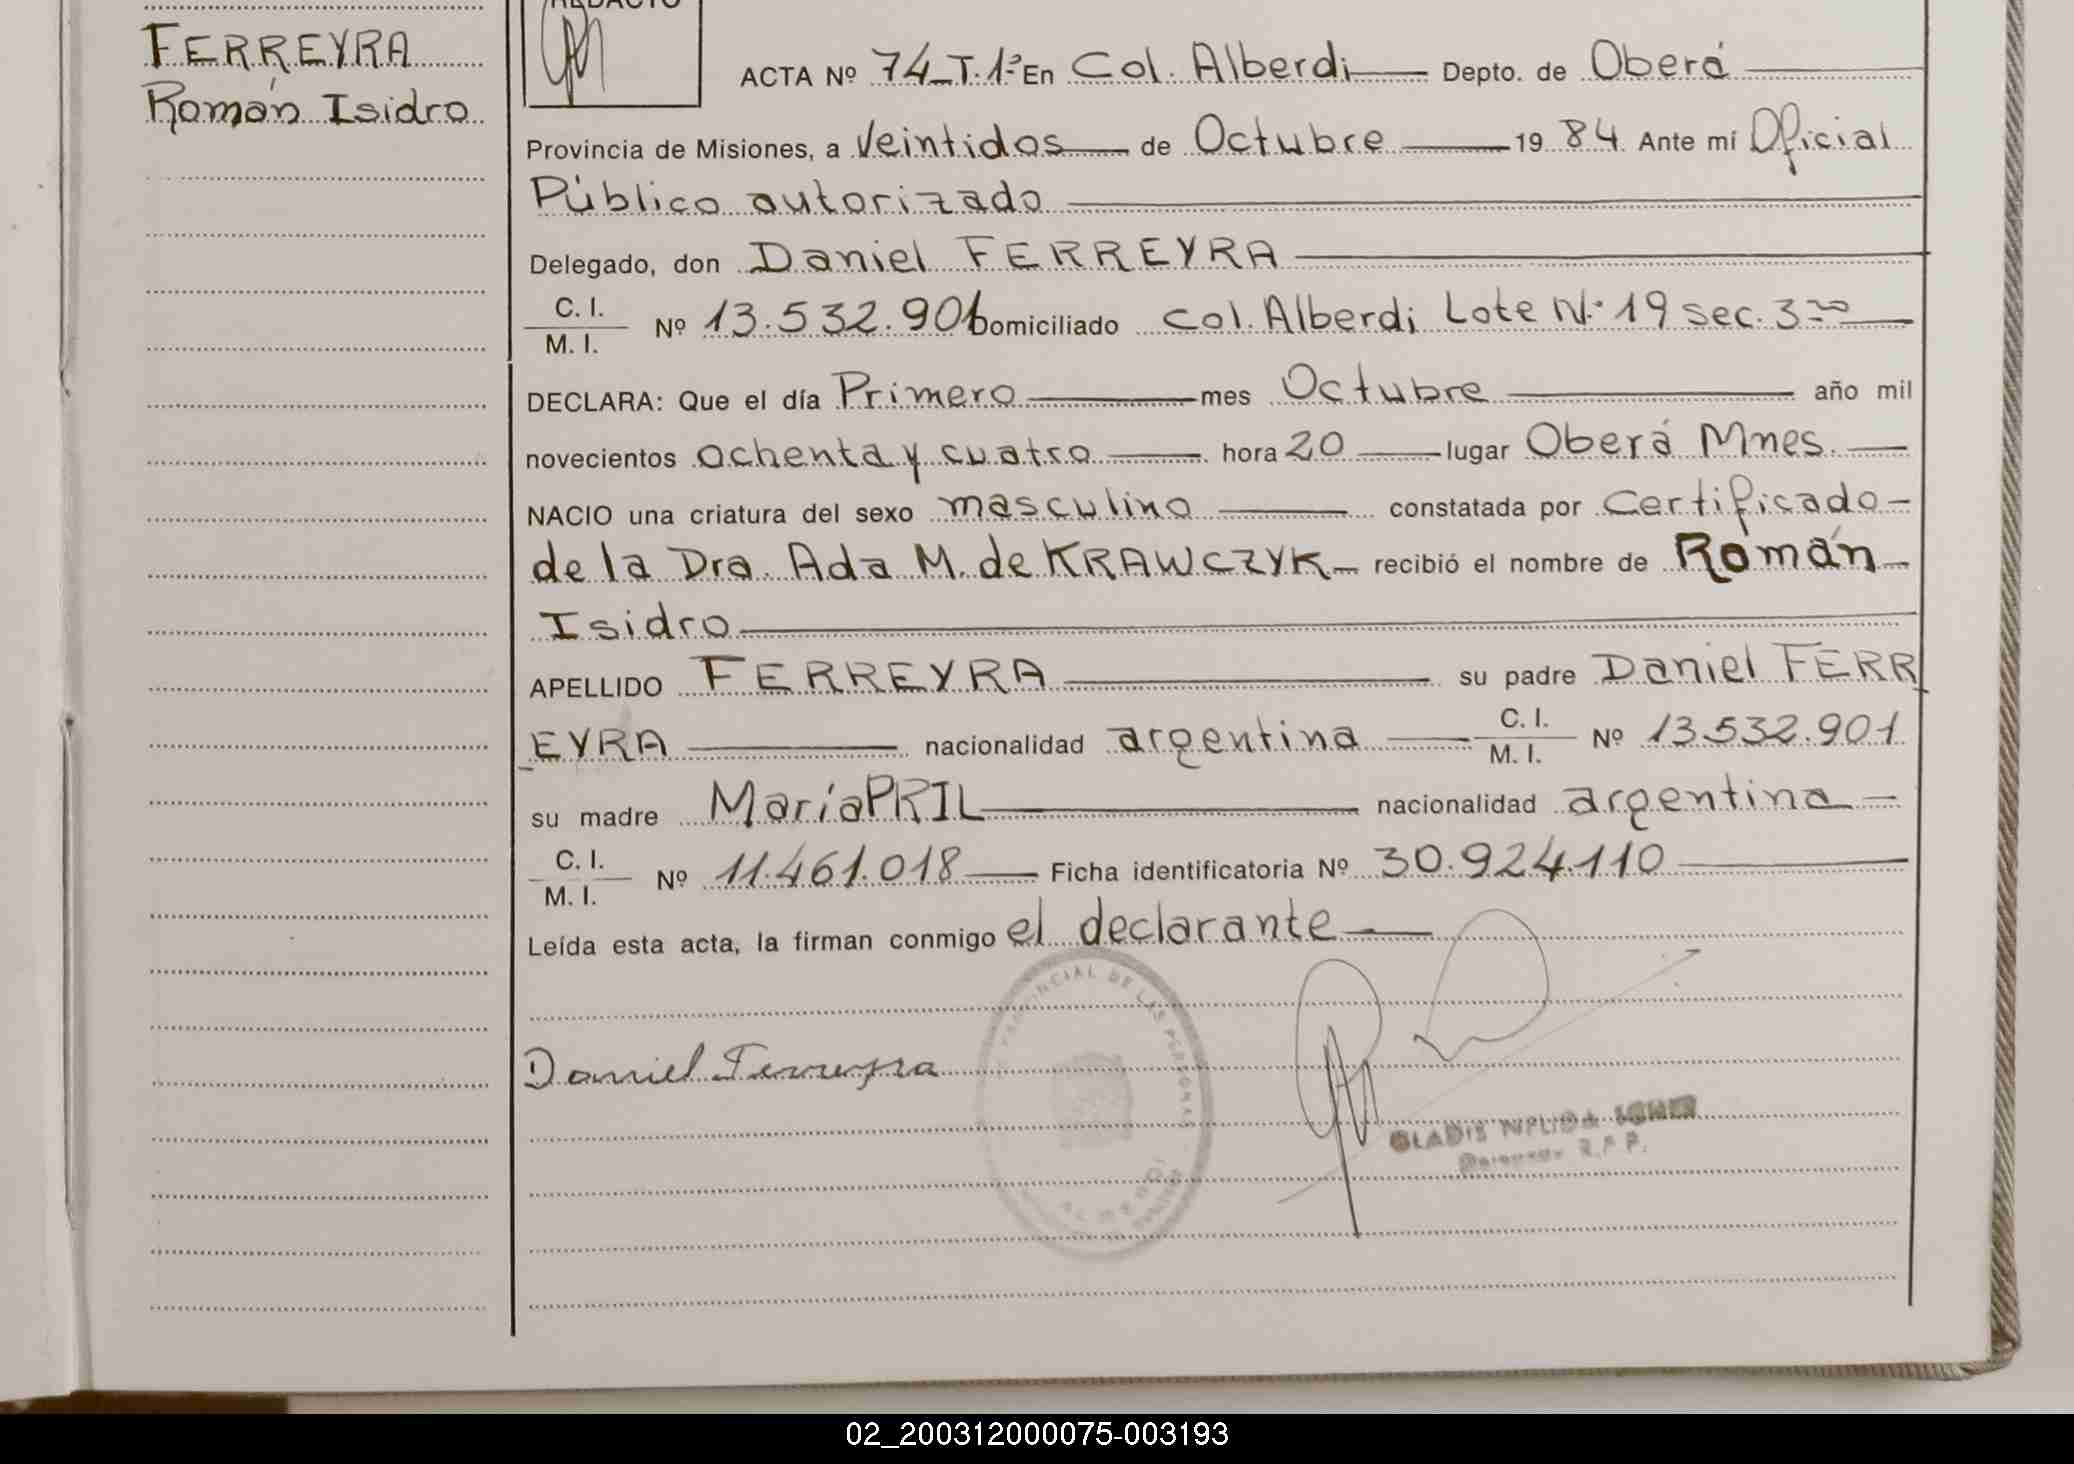 FERREYRA
Román Isidro
REDACTO
ACTA Nº 74 T. 1º En Col. Alberdi Depto. de Oberá
Provincia de Misiones, a Veintidos de Octubre 19 84 Ante mí Oficial
Público autorizado
Delegado, don Daniel FERREYRA
C. I.
M. I. Nº 13.532.901 Domiciliado Col. Alberdi Lote Nº 19 sec. 3ra
DECLARA: Que el día Primero mes Octubre año mil
novecientos ochenta y cuatro hora 20 lugar Oberá Mnes.
NACIO una criatura del sexo masculino constatada por Certificado
de la Dra. Ada M. de KRAWCZYK recibió el nombre de Román
Isidro
APELLIDO FERREYRA su padre Daniel FERR
EYRA nacionalidad argentina C. I. M. I. Nº 13.532.901
su madre María PRIL nacionalidad argentina
C. I.
M. I. Nº 11.461.018 Ficha identificatoria Nº 30.924.110
Leída esta acta, la firman conmigo el declarante
Daniel Ferreyra
DE LAS PERSONAS
GLADIS
R. P. P.
02_200312000075-003193